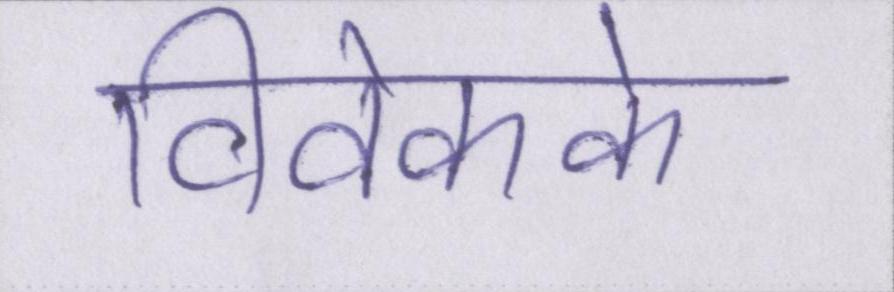 विवेकके